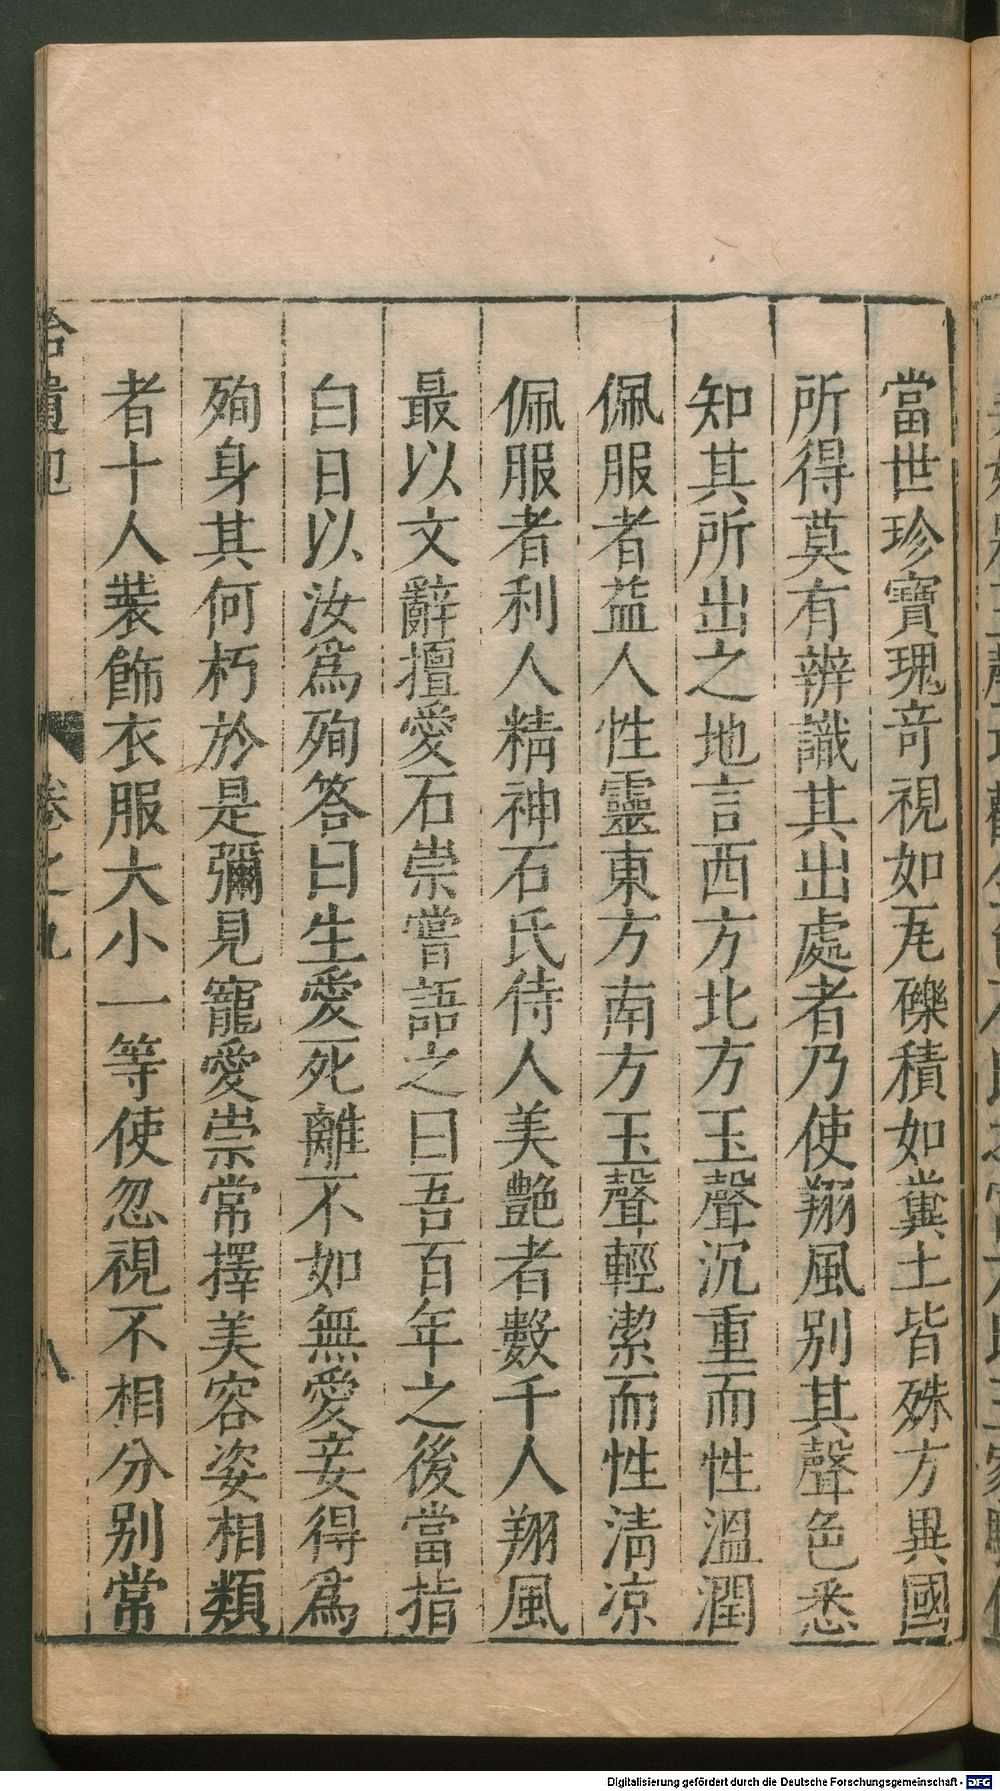 當世珍寶瑰竒視如瓦礫積如糞土皆殊方異國
所得莫有辨識其出處者乃使翔風别其聲色悉
知其所出之地言西方北方玉聲沉重而性溫潤
佩服者益人性靈東方南方玉聲輕潔而性清凉
佩服者利人精神石氏侍人美艶者數千人翔風
最以文辭擅愛石崇嘗語之曰吾百年之後當指
白日以汝爲殉答曰生愛死離不如無愛妾得爲
殉身其何朽於是彌見寵愛崇常擇美容姿相類
者十人裝飾衣服大小一等使忽視不相分别常
拾遺記 卷之九 八
Digitalisierung gefördert durch die Deutsche Forschungsgemeinschaft - DFG